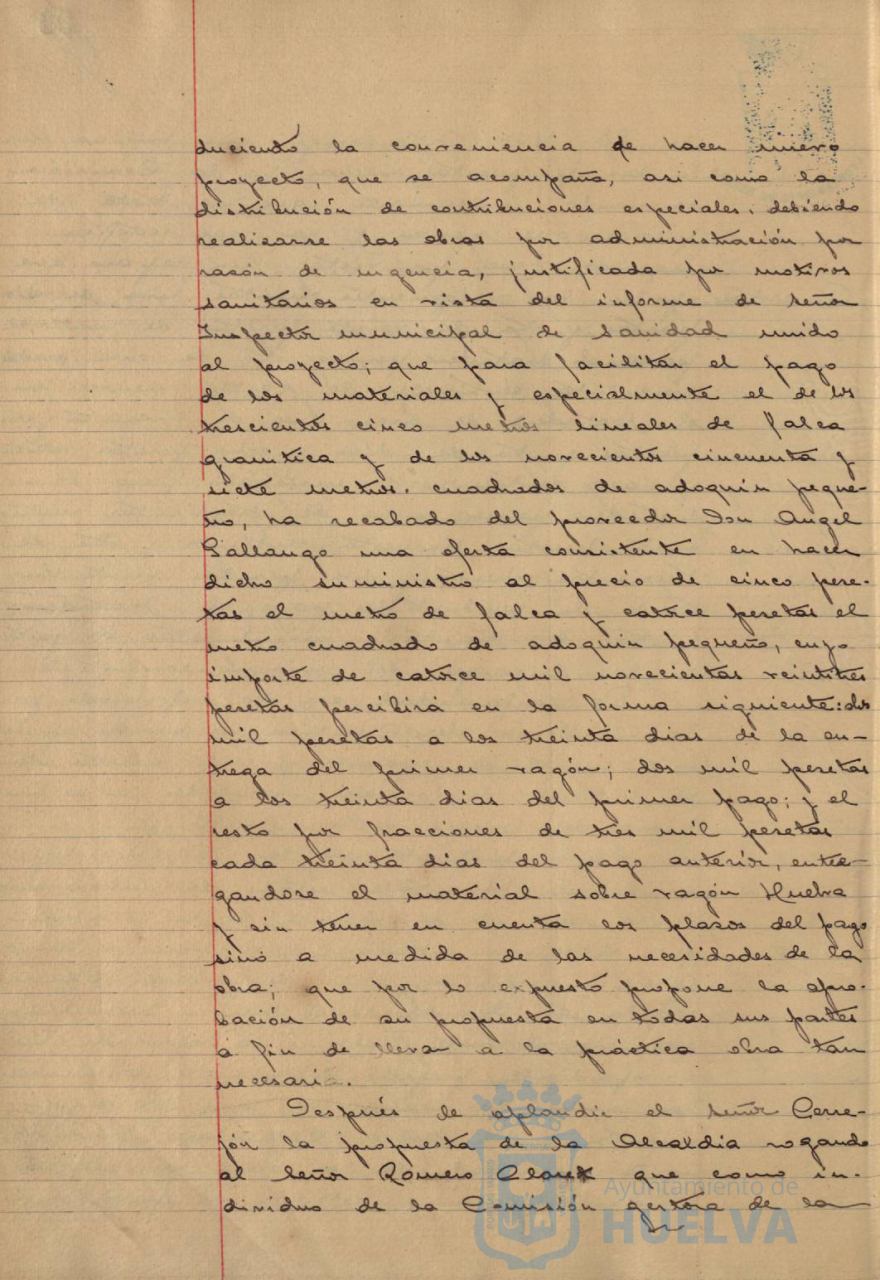 duciendo la conveniencia de hacer nuevo
proyecto, que se acompaña, asi como la
distribución de contribuciones especiales, debiendo
realizarse las obras por administración por
razón de urgencia, justificada por motivos
sanitarios en vista del informe de señor
Inspector municipal de Sanidad unido
al proyecto; que para facilitar el pago
de los materiales y especialmente el de los
trescientos cinco metros lineales de falca
granitica y de los novecientos cincuenta y
siete metros cuadrados de adoquin peque-
ño, ha recabado del proveedor Don Angel
Gallango una oferta consistente en hacer
dicho suministro al precio de cinco pese-
tas el metro de falca y catorce pesetas el
metro cuadrado de adoquin pequeño, cuyo
importe de catorce mil novecientas veintitres
pesetas percibirá en la forma siguiente: dos
mil pesetas a los treinta dias de la en-
trega del primer vagón; dos mil pesetas
a los treinta dias del primer pago; y el
resto por fracciones de tres mil pesetas
cada treinta dias del pago anterior, entre-
gandose el material sobre vagón Huelva
y sin tener en cuenta los plazos del pago
sinó a medida de las necesidades de la
obra; que por lo expuesto propone la apro-
bación de su propuesta en todas sus partes
a fin de llevar a la práctica obra tan
necesaria.
Después de aplaudir el señor Cerre-
jón la propuesta de la Alcaldia rogando
al Señor Romero Claret que como in-
dividuo de la Comisión gestora de la
Ayuntamiento de
HUELVA